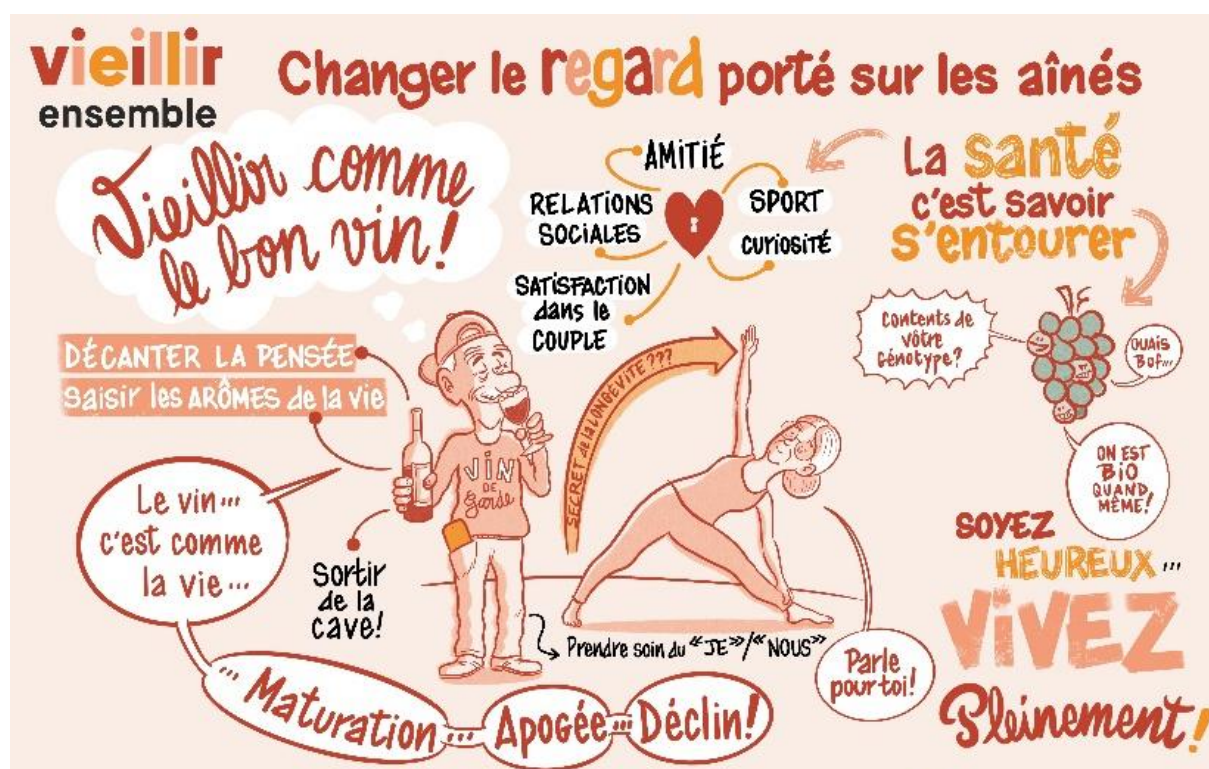 vieillir
ensemble
Changer le regard porté sur les aînés
Vieillir comme
le bon vin!
AMITIÉ
RELATIONS
SOCIALES
SPORT
CURIOSITÉ
SATISFACTION
dans le
COUPLE
La santé
c'est savoir
s'entourer
Contents de
vôtre
Génotype?
OUAIS
Bof...
ON EST
BIO
QUAND
MÊME!
DÉCANTER LA PENSÉE
Saisir les ARÔMES de la vie
VIN
DE
Garde
SECRET de la LONGÉVITÉ???
Le vin...
c'est comme
la vie...
Sortir
de la
cave!
Prendre soin du "JE"/"NOUS"
Parle
pour toi!
... Maturation ... Apogée ... Déclin!
SOYEZ
HEUREUX ...
VIVEZ
Pleinement!